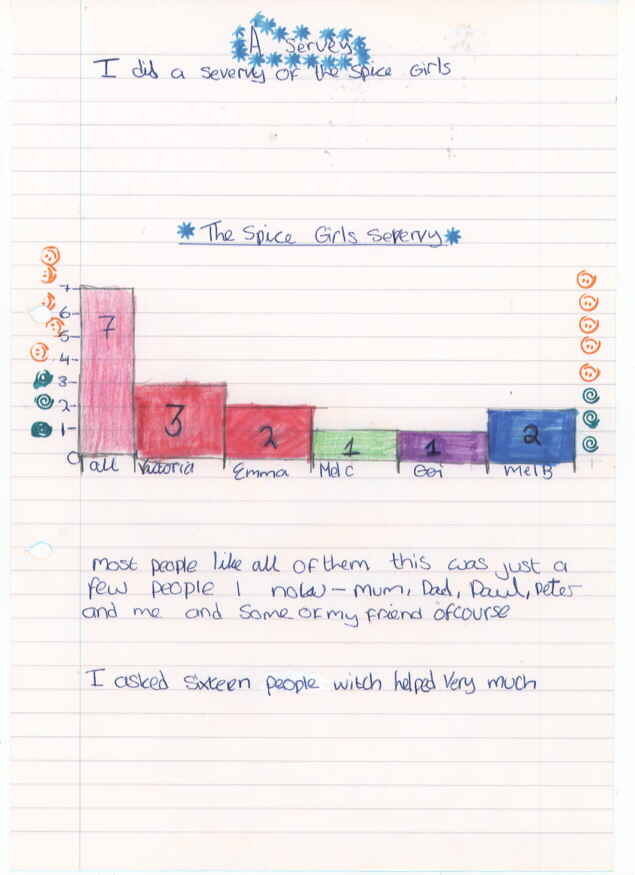 A Servey
I did a severvy of the Spice Girls
The Spice Girls Servervy
7
6
5
4
3
2
1
0
7
3
2
1
1
2
all Victoria Emma Mel C Geri Mel B
most people like all of them this was just a
few people I now - mum, Dad, Paul, Peter
and me and some of my friend ofcourse
I asked sixteen people witch helped very much